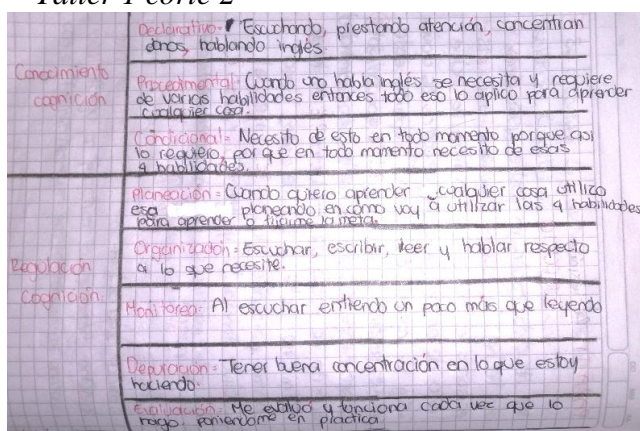 Taller 1 corte 2
Declarativo: Escuchando, prestando atención, concentran
donos, hablando inglés.
Conocimiento
cognición
Procedimental: Cuando uno habla inglés se necesita y requiere
de varias habilidades entonces todo eso lo aplico para aprender
cualquier cosa.
Condicional: Necesito de esto en todo momento porque asi
lo requiero, por que en todo momento necesito de esas
4 habilidades.
Regulación
Cognición
Planeación: Cuando quiero aprender cualquier cosa utilizo
esa planeando en cómo voy a utilizar las 4 habilidades
para aprender o la meta.
Organización: Escuchar, escribir, leer y hablar respecto
a lo que necesite.
Monitoreo: Al escuchar entiendo un poco más que leyendo
Depuración: Tener buena concentración en lo que estoy
haciendo.
Evaluación: Me evaluó y funciona cada vez que lo
hago poniendome en práctica